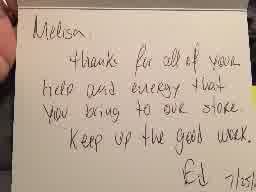 Melisa,
Thanks for all of your
help and energy that
you bring to our store.
Keep up the good work.
Ed
7/25/